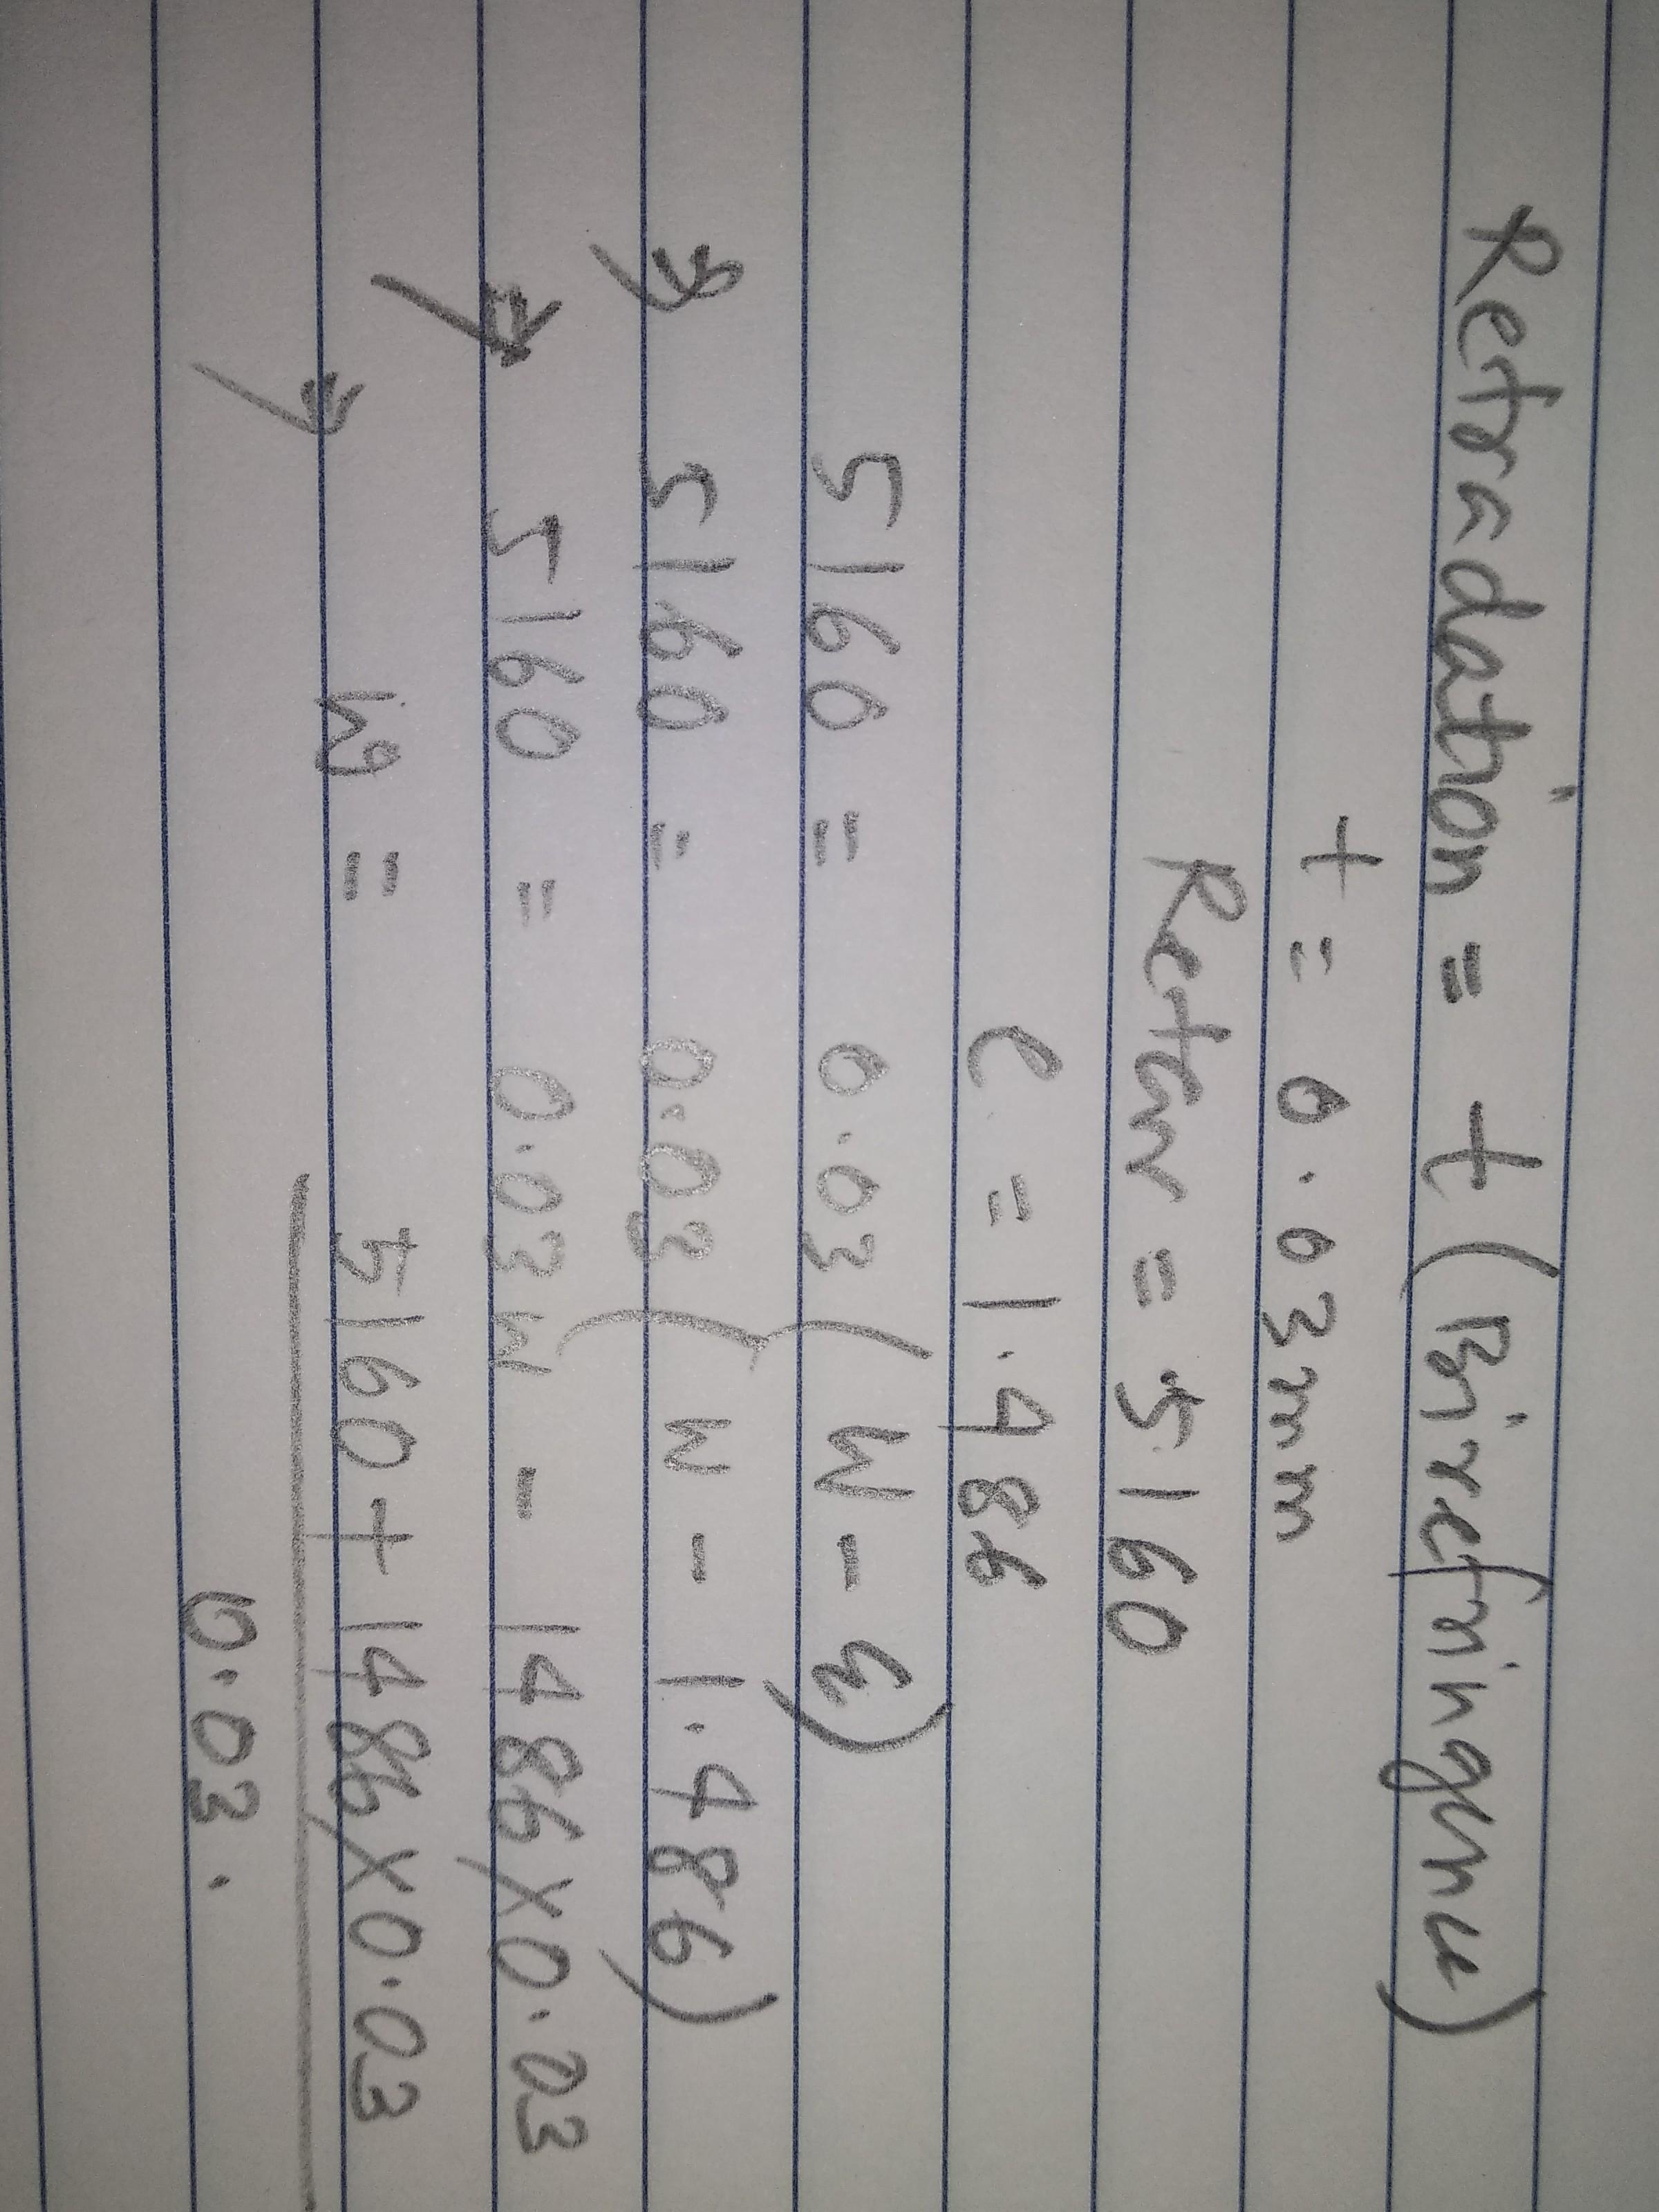 Retradation = t (Birefringence)
t = 0.03mm
Retar = 5160
e = 1.486
5160 = 0.03 (W - ε)
⇒ 5160 = 0.03 (W - 1.486)
⇒ 5160 = 0.03W - 1486 X 0.03
⇒ W = 5160 + 1486 X 0.03
0.03.